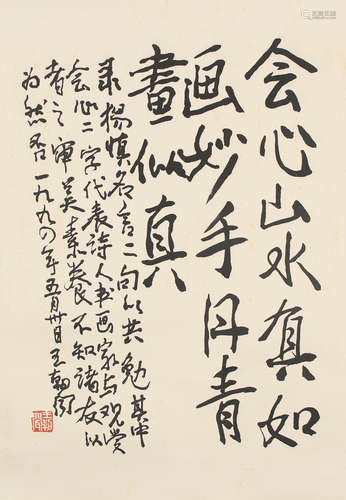 会心山水真如
画妙手丹青
畫似真
录杨慎名言二句以共勉其中
会心二字代表诗人书画家与观赏
者之审美素养不知诸友以
为然否一九九〇年五月廿日王朝闻